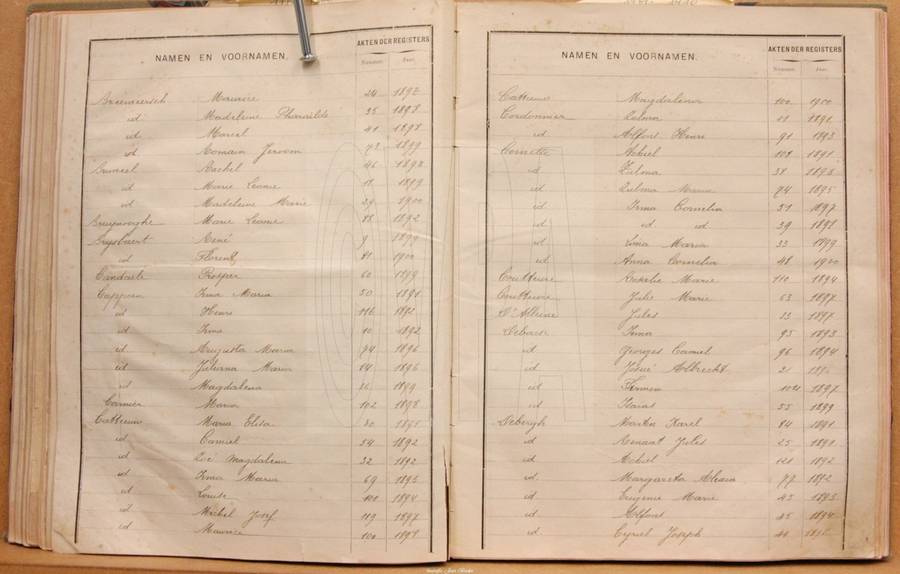 NAMEN EN VOORNAMEN.
AKTEN DER REGISTERS
Nummer. Jaar.
Maurice 24 1897
id Madeleine Pharaïlde 35 1898
id Marcel 41 1898
id Romain Jeroom 73 1899
Rachel 46 1898
id Marie Leonie 18 1899
id Madeleine Marie 29 1900
Bruyneoghe Marie Leonie 88 1892
Brysbaert René 9 1899
id Florent 81 1900
Candaele Prosper 60 1899
Cappoen Irma Maria 50 1891
id Henri 116 1891
id Irma 10 1892
id Augusta Maria 74 1896
id Juliana Maria 14 1896
id Magdalena 36 1899
Carnier Maria 102 1898
Catteeuw Maria Elisa 30 1891
id Camiel 54 1892
id Zoë Magdalena 32 1892
id Irma Maria 69 1893
id Louise 100 1894
id Michel Josef 119 1897
id Maurice 100 1898
NAMEN EN VOORNAMEN.
AKTEN DER REGISTERS
Nummer. Jaar.
Catteeuw Magdalena 100 1900
Cordonnier Zulma 11 1891
id Alfons Henri 91 1893
Cornette Achiel 108 1891
id Zulma 38 1893
id Zulma Maria 74 1895
id Irma Cornelia 51 1897
id id id 39 1898
id Irma Maria 33 1899
id Anna Cornelia 48 1900
Coutteure Aurelie Marie 110 1894
Coutteure Julie Marie 63 1897
D'Alleine Jules 13 1897
Debaere Irma 95 1893
id Georges Camiel 96 1894
id Josué Albrecht 21 1896
id Firmin 1897
id 55 1899
Debergh Martin Karel 84 1891
id Renaat Jules 25 1891
id Achiel 121 1892
id Margareta 77 1892
id Eugenie Marie 43 1893
id Alfons 45 1894
id Cyriel Joseph 40